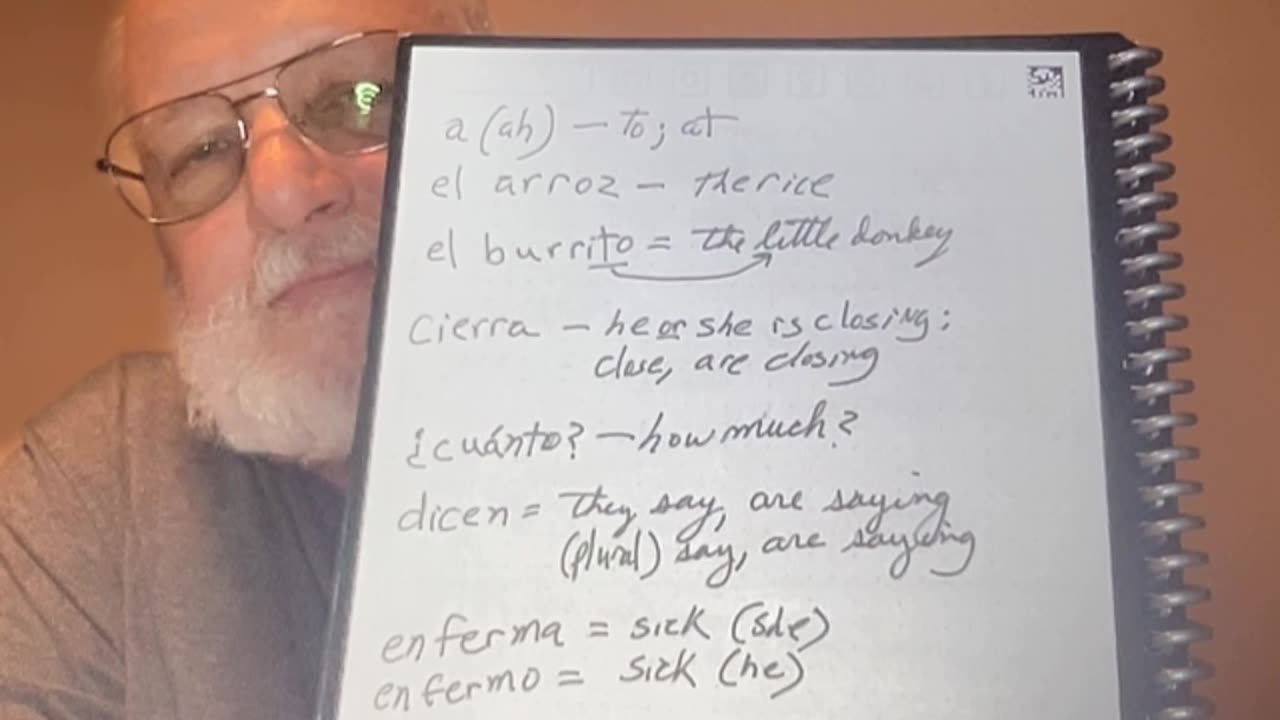 a (ah) – to; at
el arroz – the rice
el burrito = the little donkey
Cierra – he or she is closing;
close, are closing
¿cuánto? – how much?
dicen = they say, are saying
(plural) say, are saying
enferma = sick (she)
enfermo = sick (he)